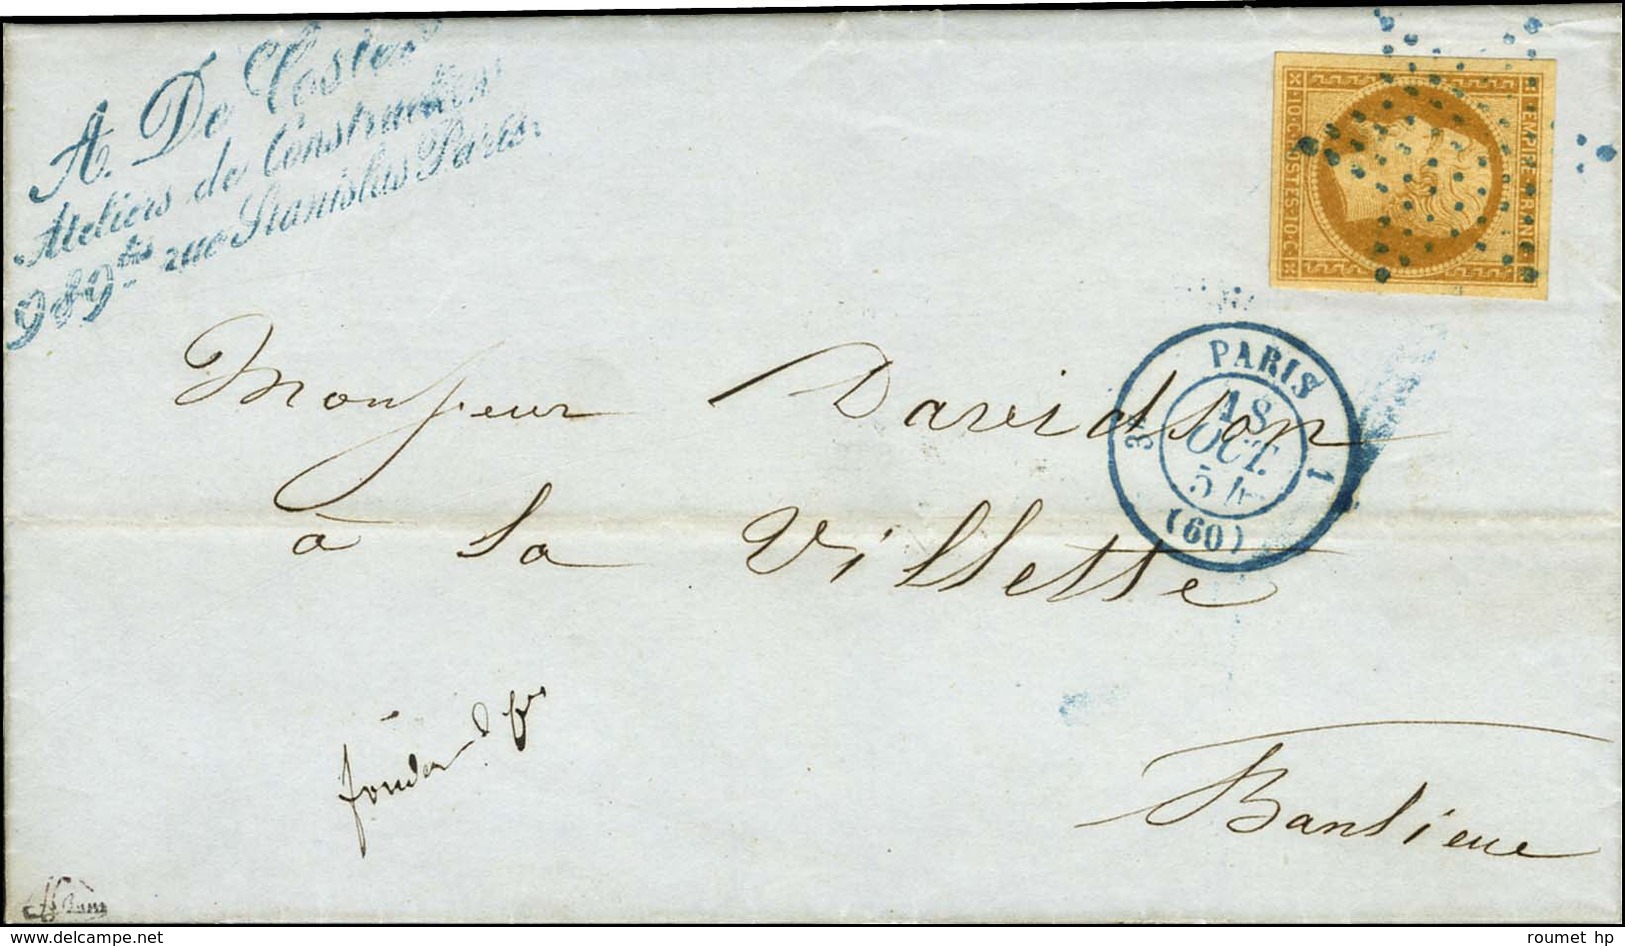 A. De Coster
Ateliers de Construction
9 & 9 bis rue Stanislas Paris.
EMPIRE FRANC
10·C·POSTES·10·C
PARIS 1
3E
18
OCT.
54
(60)
Monsieur Davidson
à La Villette
Banlieue
delcampe.net
roumet hp